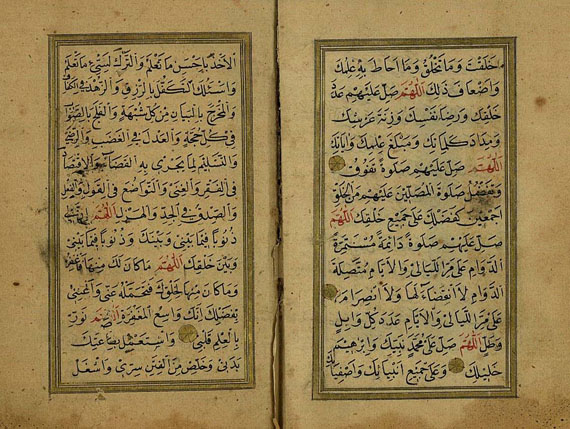 خَلَقْتَ وَمَا تَخْلُقُ وَمَا اَحَاطَ بِهِ عِلْمُكَ
وَاَضْعَافَ ذٰلِكَ اَللّٰهُمَّ صَلِّ عَلَيْهِمْ عَدَدَ
خَلْقِكَ وَرِضَاءَ نَفْسِكَ وَزِنَةَ عَرْشِكَ
وَمِدَادَ كَلِمَاتِكَ وَمَبْلَغَ عِلْمِكَ وَاٰيَاتِكَ
اَللّٰهُمَّ صَلِّ عَلَيْهِمْ صَلٰوةً تَفُوقُ
وَتَفْضُلُ صَلٰوةَ الْمُصَلِّينَ عَلَيْهِمْ مِنَ الْخَلْقِ
اَجْمَعِينَ كَفَضْلِكَ عَلٰى جَمِيعِ خَلْقِكَ اَللّٰهُمَّ
صَلِّ عَلَيْهِمْ صَلٰوةً دَائِمَةً مُسْتَمِرَّةَ
الدَّوَامِ عَلٰى مَرِّ اللَّيَالِي وَالْاَيَّامِ مُتَّصِلَةَ
الدَّوَامِ لَا انْقِضَاءَ لَهَا وَلَا انْصِرَامَ
عَلٰى مَرِّ اللَّيَالِي وَالْاَيَّامِ عَدَدَ كُلِّ وَابِلٍ
وَطَلٍّ اَللّٰهُمَّ صَلِّ عَلٰى مُحَمَّدٍ نَبِيِّكَ وَاِبْرٰهِيمَ
خَلِيلِكَ وَعَلٰى جَمِيعِ اَنْبِيَائِكَ وَاَصْفِيَائِكَ
الْاَخْذَ بِاَحْسَنِ مَا تَعْلَمُ وَالتَّرْكَ لِسَيِّئِ مَا تَعْلَمُ
وَاَسْئَلُكَ التَّكَفُّلَ بِالرِّزْقِ وَالزُّهْدَ فِي الْكَفَافِ
وَالْمَخْرَجَ بِالْبَيَانِ مِنْ كُلِّ شُبْهَةٍ وَالْفَلَجَ بِالصَّوَابِ
فِي كُلِّ حُجَّةٍ وَالْعَدْلَ فِي الْغَضَبِ وَالرِّضَاءِ
وَالتَّسْلِيمَ لِمَا يَجْرِي بِهِ الْقَضَاءُ وَالْاِقْتِصَادَ
فِي الْفَقْرِ وَالْغِنٰى وَالتَّوَاضُعَ فِي الْقَوْلِ وَالْفِعْلِ
وَالصِّدْقَ فِي الْجِدِّ وَالْهَزْلِ اَللّٰهُمَّ اِنَّ لِي
ذُنُوبًا فِيمَا بَيْنِي وَبَيْنَكَ وَذُنُوبًا فِيمَا بَيْنِي
وَبَيْنَ خَلْقِكَ اَللّٰهُمَّ مَا كَانَ لَكَ مِنْهَا فَاغْفِرْهُ
وَمَا كَانَ مِنْهَا لِخَلْقِكَ فَتَحَمَّلْهُ عَنِّي وَاَغْنِنِي
بِفَضْلِكَ اِنَّكَ وَاسِعُ الْمَغْفِرَةِ اَللّٰهُمَّ نَوِّرْ
بِالْعِلْمِ قَلْبِي وَاسْتَعْمِلْ بِطَاعَتِكَ
بَدَنِي وَخَلِّصْ مِنَ الْفِتَنِ سِرِّي وَاشْغَلْ